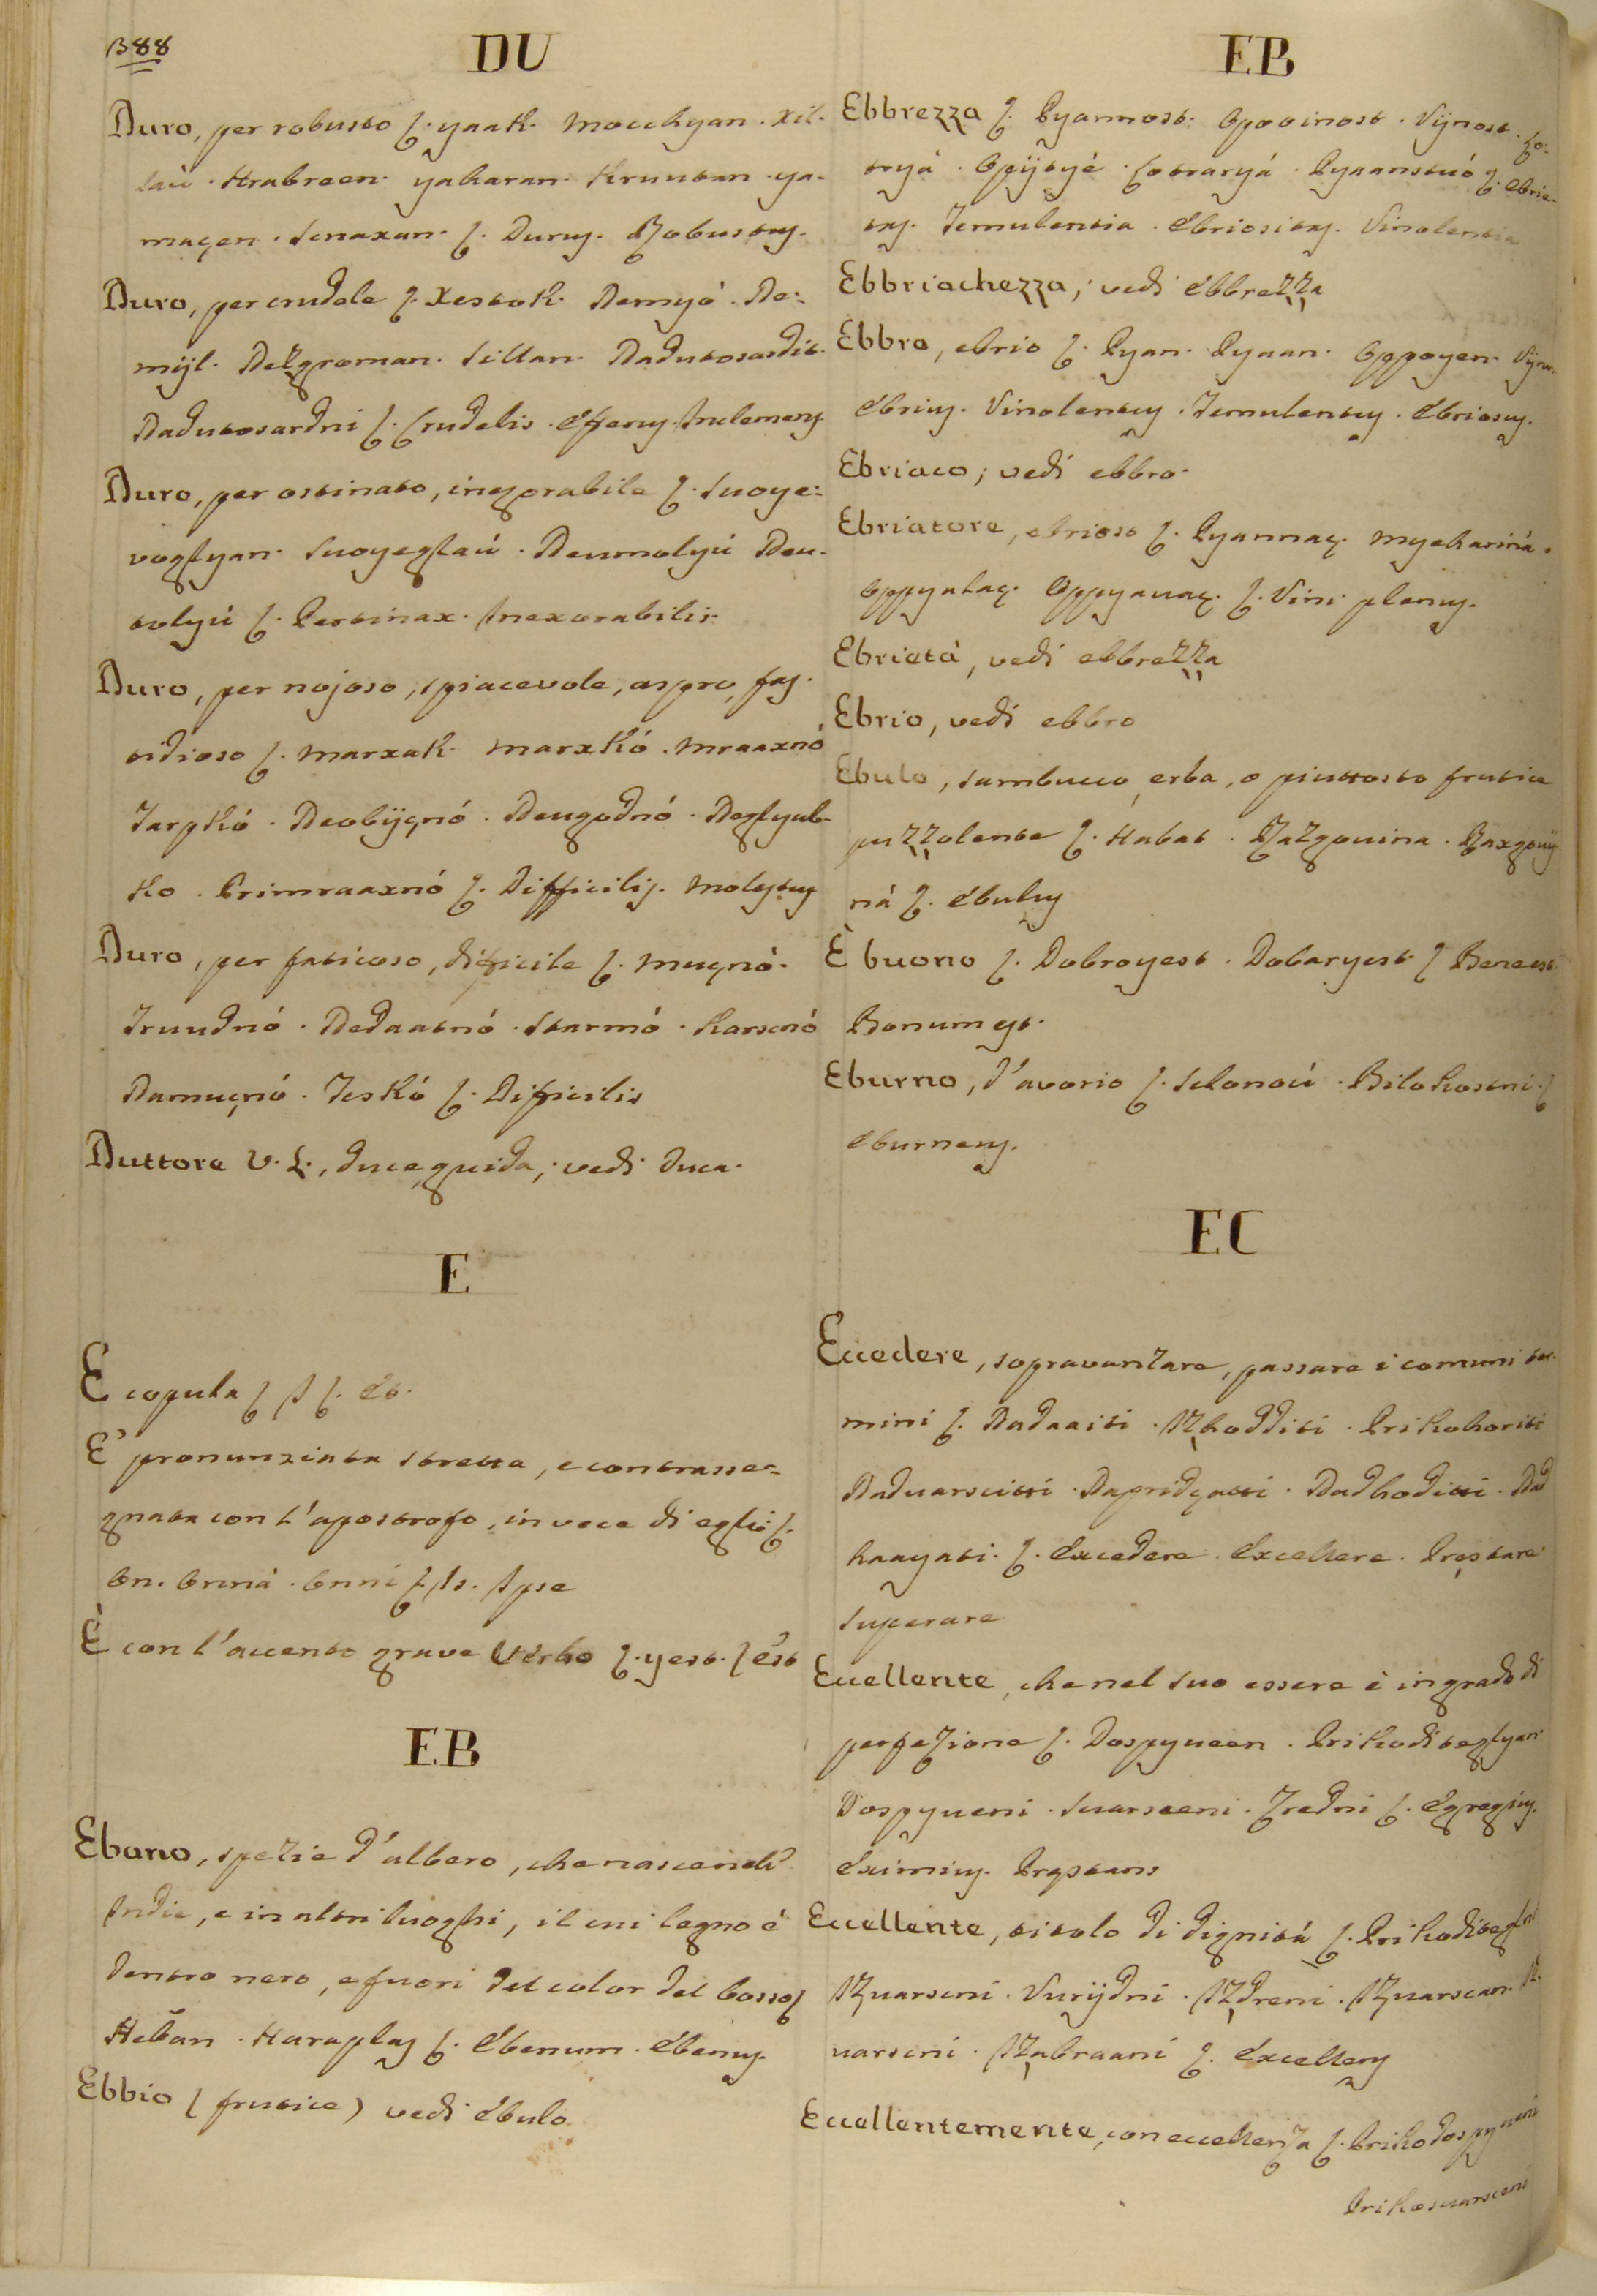 388
DU
Duro, per robusto ſ. yaak. Mocchyan. Xil-
laú. Hrabreen. yakaran. Kruutan. ya-
maçen. Senaxan. ſ. Durus. Robustus.
Duro, per crudele ſ. Xestok. Nemyó. Ne-
mijl. Nezgroman. Sillan. Nadutosardit.
Nadutosardni ſ. Crudelis. Efferus. Inclemens
Duro, per ostinato, inexorabile ſ. Suoye-
voglyan. Suoyeglaú. Neumolyú Neu-
tolyú ſ. Pertinax. Inexorabilis.
Duro, per nojoso, spiacevole, aspro, fas-
tidioso ſ. Marxak. Marxkó. Mraaxnó
Tarpkó. Neobijçnó. Neugodnó. Neglyub-
ko. Primraaxnó ſ. Difficilis. Molestus
Duro, per faticoso, dificile ſ. Muçnó.
Truudnó. Nedaatnó. Starmó. Karscnó
Namuçnó. Teskó ſ. Dificilis
Duttore V. L., duce, guida; vedi Duca.
E
E copula ſ I ſ. Et.
E' pronunziata stretta, e contrasse-
gnata con l'apostrofo, in vece di egli ſ.
On. Onná. Onni ſ. Is. Ipse
È con l'accento grave Verbo ſ. yest. ſ ést
EB
Ebano, spezie d'albero, che nasce nell'
Indie, e in altri luoghi, il cui legno è
dentro nero, e fuori del color del bosso ſ
Heban. Haraplas ſ. Ebenum. Ebenus.
Ebbio (frutice) vedi Ebulo
EB
Ebbrezza ſ. Pyannost. Opooinost. Vijnost. Lo-
tryá. Opijtyé. Lotraryá. Pyaanstuó ſ. Ebrie-
tas. Temulentia. Ebriositas. Vinolentia
Ebbriachezza; vedi Ebbrezza
Ebbro, ebrio ſ. Pyan. Pyaan. Oppoyen. Vijnan.
Ebrius. Vinolentus. Temulentus. Ebriosus.
Ebriaco; vedi ebbro.
Ebriatore, ebrioso ſ. Pyannaç. Myehariná.
Oppyalaç. Oppyauaç. ſ. Vini plenus.
Ebrietá, vedi ebbrezza
Ebrio, vedi ebbro
Ebulo, sambucco, erba, o piuttosto frutice
puzzolente ſ. Habat. Razgouina. Raxgouij-
ná ſ. Ebulus
È buono ſ. Dobroyest. Dobaryest. ſ Bene est.
Bonum est.
Eburno, d'avorio ſ. Slonoú. Bilokostni. ſ
Eburneus.
EC
Eccedere, sopravanzare, passare i comuni ter-
mini ſ. Nadaaiti. Izhodditi. Prikohoriti
Naduarscitti. Napridgatti. Nadhoditti. Nad
haayati. ſ. Excedere. Excellere. Prestare
Superare
Eccellente, che nel suo essere è in grado di
perfezione ſ. Dospyueen. Prikoditeglyan
Dospyueni. Suarsceni. Zredni ſ. Egregius.
Eximius. Prestans
Eccellente, titolo di dignitá ſ. Prikoditeglni
Izuarscni. Vurijdni. Izdreni. Izuarscan. Iz-
uarscni. Izabraani ſ. Excellens
Eccellentemente, con eccellenza ſ. Prikodospyueni
Prikosuarsceni